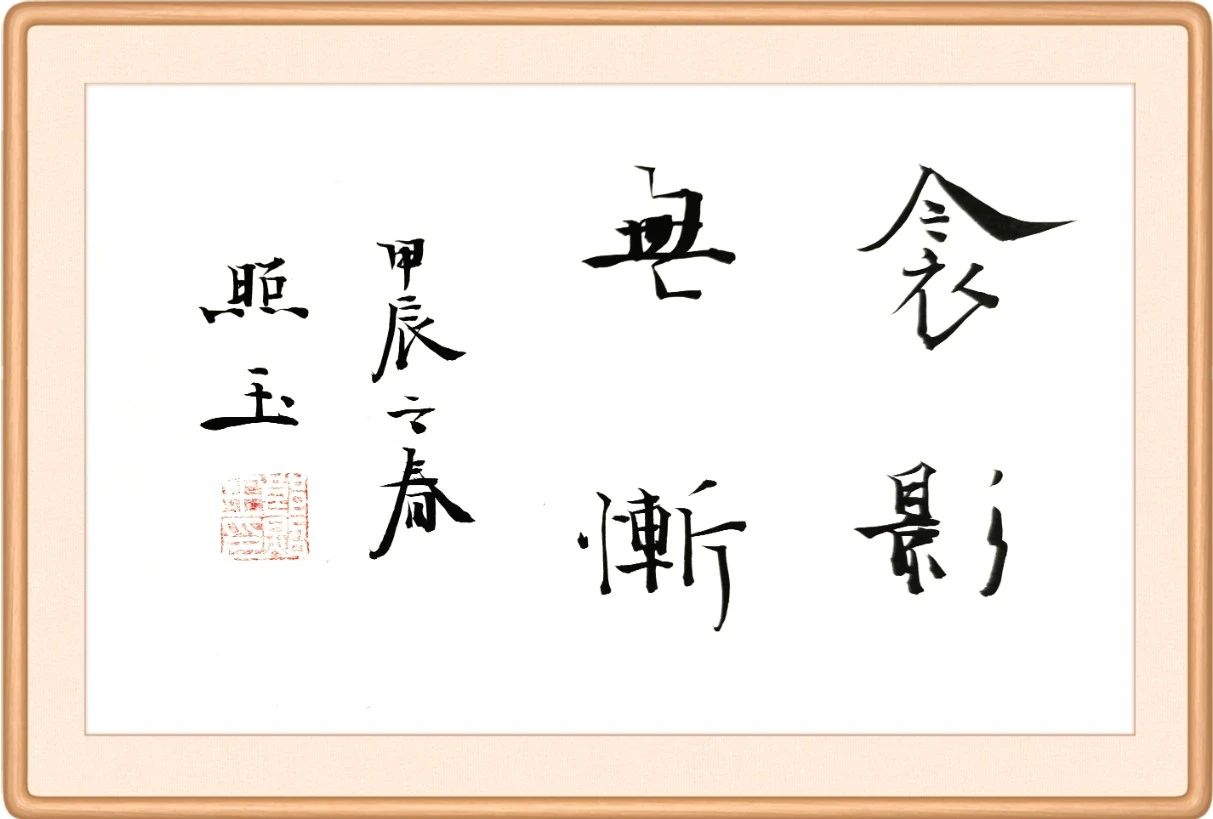 衾影
無慚
甲辰之春
照玉